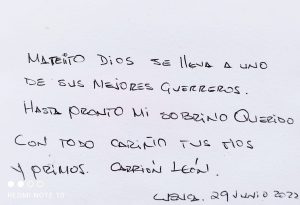 MATEITO DIOS SE LLEVA A UNO
DE SUS MEJORES GUERREROS.
HASTA PRONTO MI SOBRINO QUERIDO
CON TODO CARIÑO TUS TIOS
Y PRIMOS. CARRIÓN LEÓN.
29 JUNIO 2022
REDMI NOTE 10